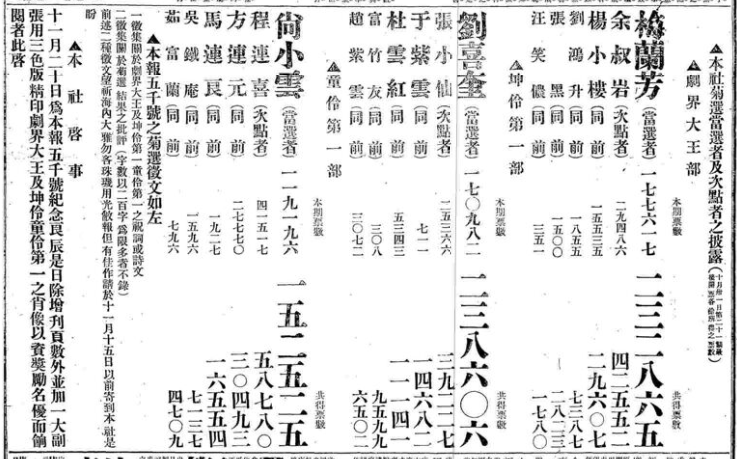 ▲本社菊選當選者及次點者之披露
▲劇界大王部
梅蘭芳(當選者)一七七六一七 二三二八六五
余叔岩(次點者)二九四八六 四二五五二
楊小樓(同前)一五五三五 二九六〇七
劉鴻升(同前)一八五五 七三八七
張黑(同前)一五〇〇 二八二三
汪笑儂(同前)三五一 一七八〇
本期票數
共得票數
▲坤伶第一部
劉喜奎(當選者)一七〇九八二 二三八六〇六
張小仙(次點者)二五三六六 三九二二七
于紫雲(同前)七一一 一四六八二
杜雲紅(同前)五三四三 一一一四一
富竹友(同前)三〇八 九五七九
趙紫雲(同前)三〇七二 六五〇二
本期票數
共得票數
▲童伶第一部
尙小雲(當選者)一一九一九六 一五二五二五
程連喜(次點者)四一五一七 五八七八〇
方連元(同前)二七七七〇 三〇四九三
馬連良(同前)一九二七 一六五五四
吳鐵庵(同前)一五九六 七一三七
茹富蘭(同前)七九六 四七〇九
本期票數
共得票數
▲本報五千號之菊選徵文如左
一徵集關於劇界大王及坤伶第一童伶第一之祝詞或詩文
二徵集關於菊選結果之批評(字數以二百字爲限多者不錄)
前述二種徵文望海內大雅勿吝珠璣用光敝報但有佳作請於十一月十五日以前寄到本社是
盼
▲本社啓事
十一月二十日爲本報五千號紀念良辰是日除增刊頁數外並加一大副
張用三色版精印劇界大王及坤伶童伶第一之肖像以資奬勵名優而餉
閱者此啓